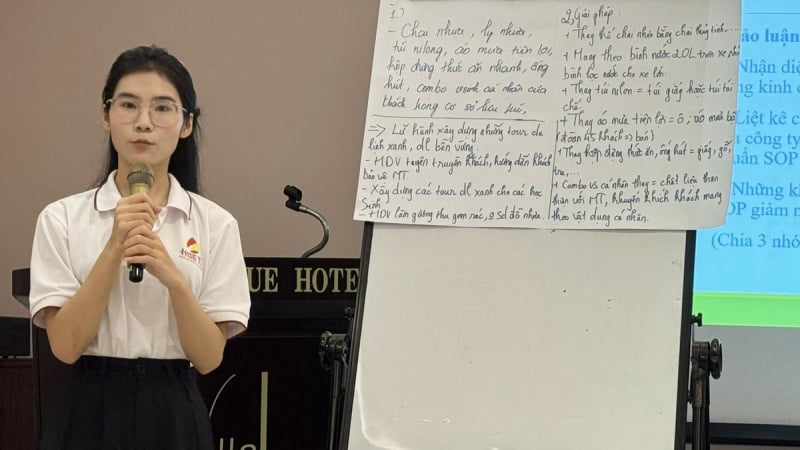 1)
- Chai nhựa, ly nhựa,
túi nilong, áo mưa tiện lợi,
hộp đựng thức ăn nhanh, ống
hút, combo vsinh cá nhân của
khách trong cơ sở lưu trú,
=> Lữ hành xây dựng những tour du
lịch xanh, dl bền vững.
- HDV tuyên truyền khách, hướng dẫn khách
bảo vệ MT.
- Xây dựng các tour dl xanh cho các học
sinh
- HDV làm gương thu gom rác, 0 sd đồ nhựa.
2, Giải pháp:
+ Thay thế chai nhựa bằng chai thủy tinh,...
+ Mang theo bình nước 20L trên xe
bình lọc nước cho xe lớn.
+ Thay túi nilon = túi giấy hoặc túi tái
chế.
+ Thay áo mưa tiện lợi = ô, áo mưa bộ
(đoàn 45 khách => bán)
+ Thay hộp đựng thức ăn, ống hút = giấy, gỗ,
tre,...
+ Combo vs cá nhân thay = chất liệu thân
thiện với MT, khuyến khích khách mang
theo vật dụng cá nhân.
ảo luận
Nhận diệ
ng kinh
Liệt kê c
công ty
uẩn SOP
Những k
OP giảm
(Chia 3 nhó
HUẾ
UE HOTE